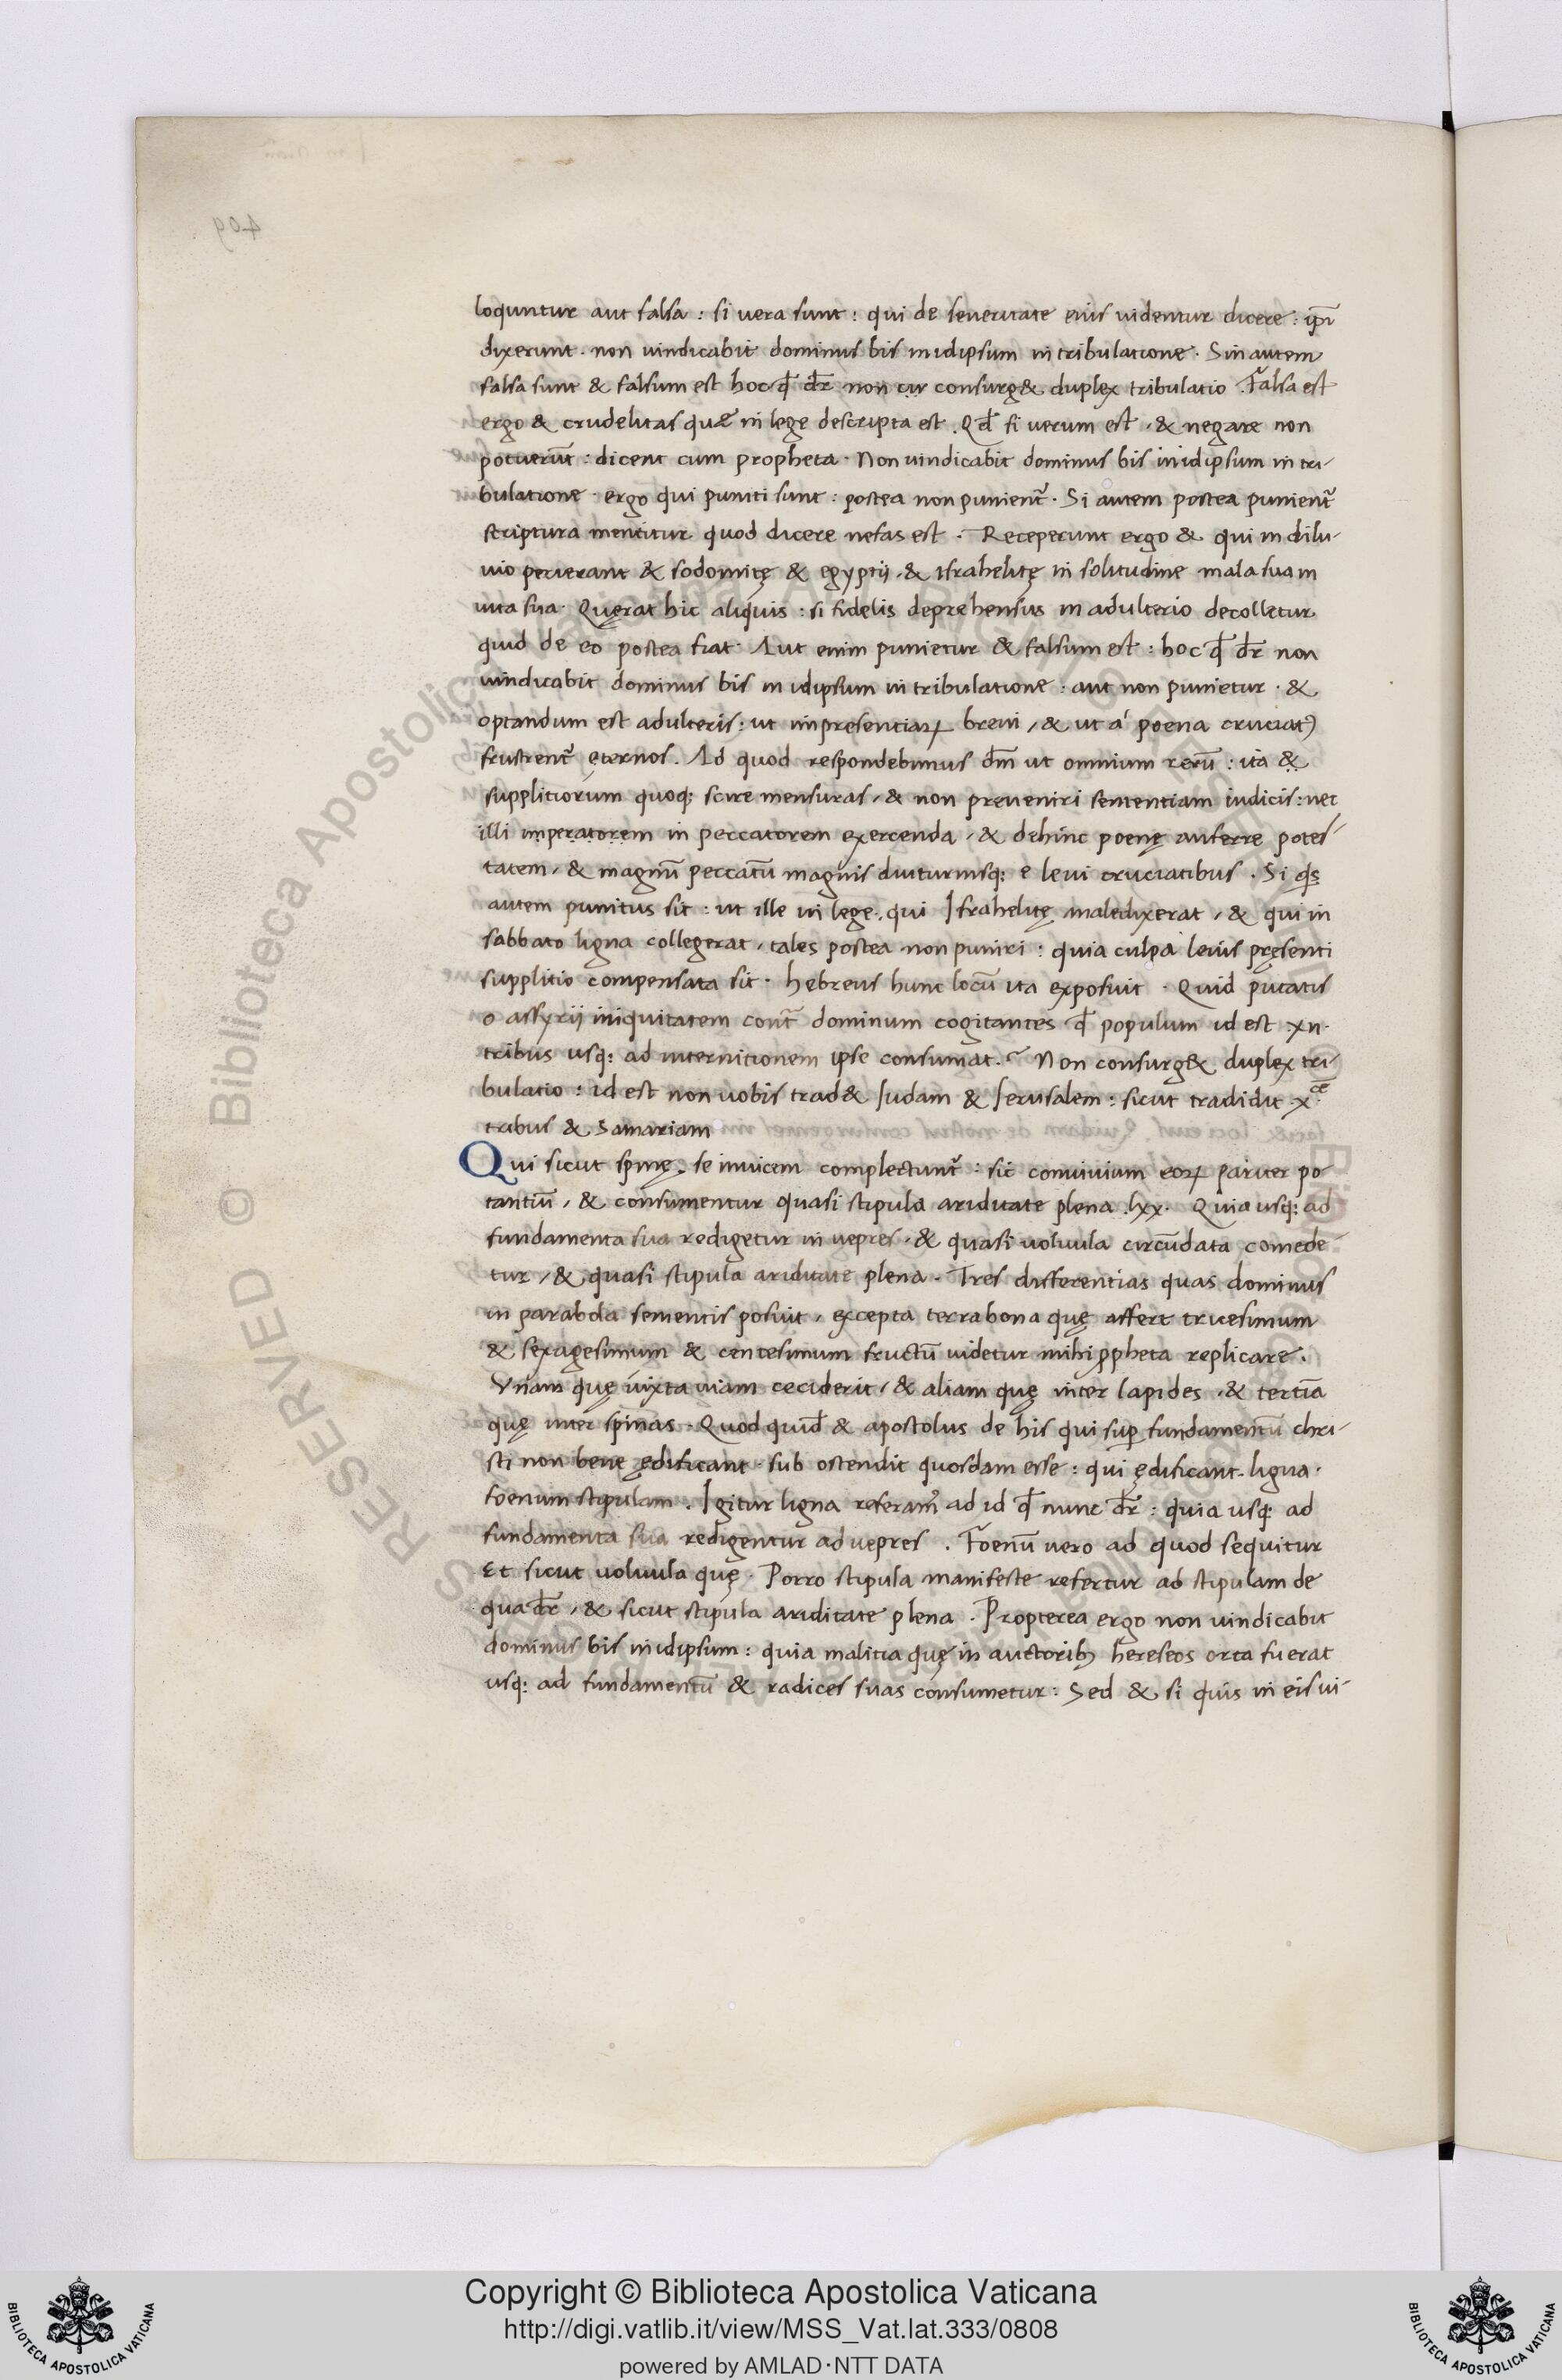 loquntur aut falsa : si uera sunt : qui de seueritate eius uidentur dicere : ip̄i
dixerunt . non uindicabit dominus bis in idipsum in tribulatione . Sin autem
falsa sunt & falsum est hoc qđ dr̄ non cur consurg& duplex tribulatio . Falsa est
ergo & crudelitas quæ in lege descripta est . Qđ si uerum est , & negare non
potuerūt : dicent cum propheta . Non uindicabit dominus bis in idipsum in tri-
bulatione . ergo qui puniti sunt : postea non punient᷑ . Si autem postea punient᷑
scriptura mentitur quod dicere nefas est . Receperunt ergo & qui in dilu-
uio perierant & sodomitę & egyptij , & Israhelitę in solitudine mala sua in
uita sua . Quęrat hic aliquis : si fidelis deprehensus in adulterio decolletur
quid de eo postea fiat . Aut enim punietur & falsum est : hoc qđ dr̄ non
uindicabit dominus bis in idipsum in tribulatione : aut non punietur . &
optandum est adulteris : ut inpresentiaꝝ breui , & ut a' poena cruciatꝰ
frustrent᷑ ęternos . Ad quod respondebimus dm̄ ut omnium rerū : ita &
supplitiorum quoq; scire mensuras , & non preueniri sententiam iudicis : nec
illi imperatorem in peccatorem exercenda , & dehinc poenę auferre potes-
tatem , & magnū peccatū magnis diuturnisq; e leui cruciatibus . Si q̄s
autem punitus sit : ut ille in lege , qui Israhelitę maledixerat , & qui in
sabbato ligna collegerat , tales postea non puniri : quia culpa leuis pręsenti
supplitio compensata sit . hebreus hunc locū ita exposuit . Quid putatis
o assyrij iniquitatem cont᷑ dominum cogitantes qđ populum id est xn .
tribus usq; ad internitionem ipse consumat . Non consurg& duplex tri-
bulatio : id est non uobis trad& Iudam & Ierusalem : sicut tradidit .x.cē
tribus & Samariam
Qui sicut spinę se inuicem complectunt᷑ : sic conuiuium eoꝝ pariter po-
tantiū , & consumentur quasi stipula ariditate plena .lxx. Quia usq; ad
fundamenta sua redigetur in uepres , & quasi uoluula circūdata comede-
tur , & quasi stipula ariditate plena . Tres differentias quas dominus
in parabola sementis posuit , excepta terra bona quę affert tricesimum
& sexagesimum & centesimum fructū uidetur mihi ꝓpheta replicare .
Vnam quę iuxta uiam ceciderit , & aliam quę inter lapides , & tertiā
quę inter spinas . Quod quid̄ & apostolus de his qui sup̱ fundamentū chri-
sti non bene ędificant . sub ostendit quosdam esse : qui ędificant . ligna .
foenum stipulam . Igitur ligna referam᷒ ad id qđ nunc dr̄ : quia usq; ad
fundamenta sua redigentur ad uepres . Foenū uero ad quod sequitur
Et sicut uoluula quę . Porro stipula manifeste refertur ad stipulam de
qua dr̄ , & sicut stipula ariditate plena . Propterea ergo non uindicabit
dominus bis in idipsum : quia malitia quę in auctoribꝫ hereseos orta fuerat
usq; ad fundamentū & radices suas consumetur : Sed & si quis in eis ui-
409
RESERVED © Biblioteca Apostolica Vaticana
Copyright © Biblioteca Apostolica Vaticana
http://digi.vatlib.it/view/MSS_Vat.lat.333/0808
powered by AMLAD·NTT DATA
BIBLIOTECA APOSTOLICA VATICANA
BIBLIOTECA APOSTOLICA VATICANA